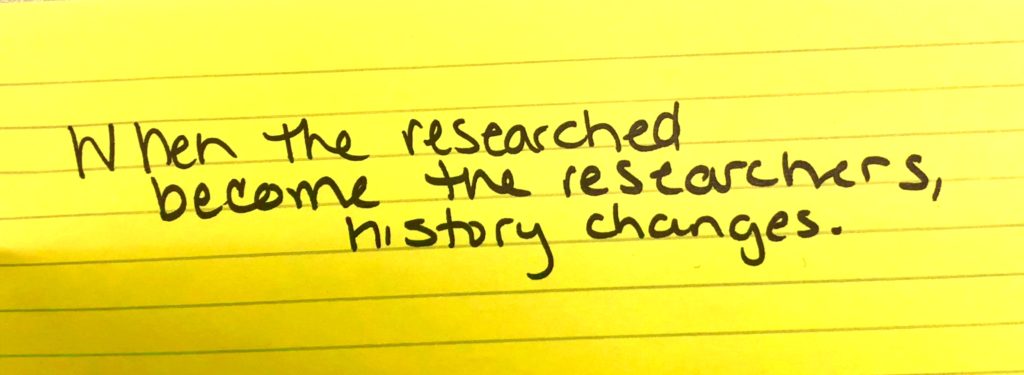 When the researched
become the researchers,
history changes.